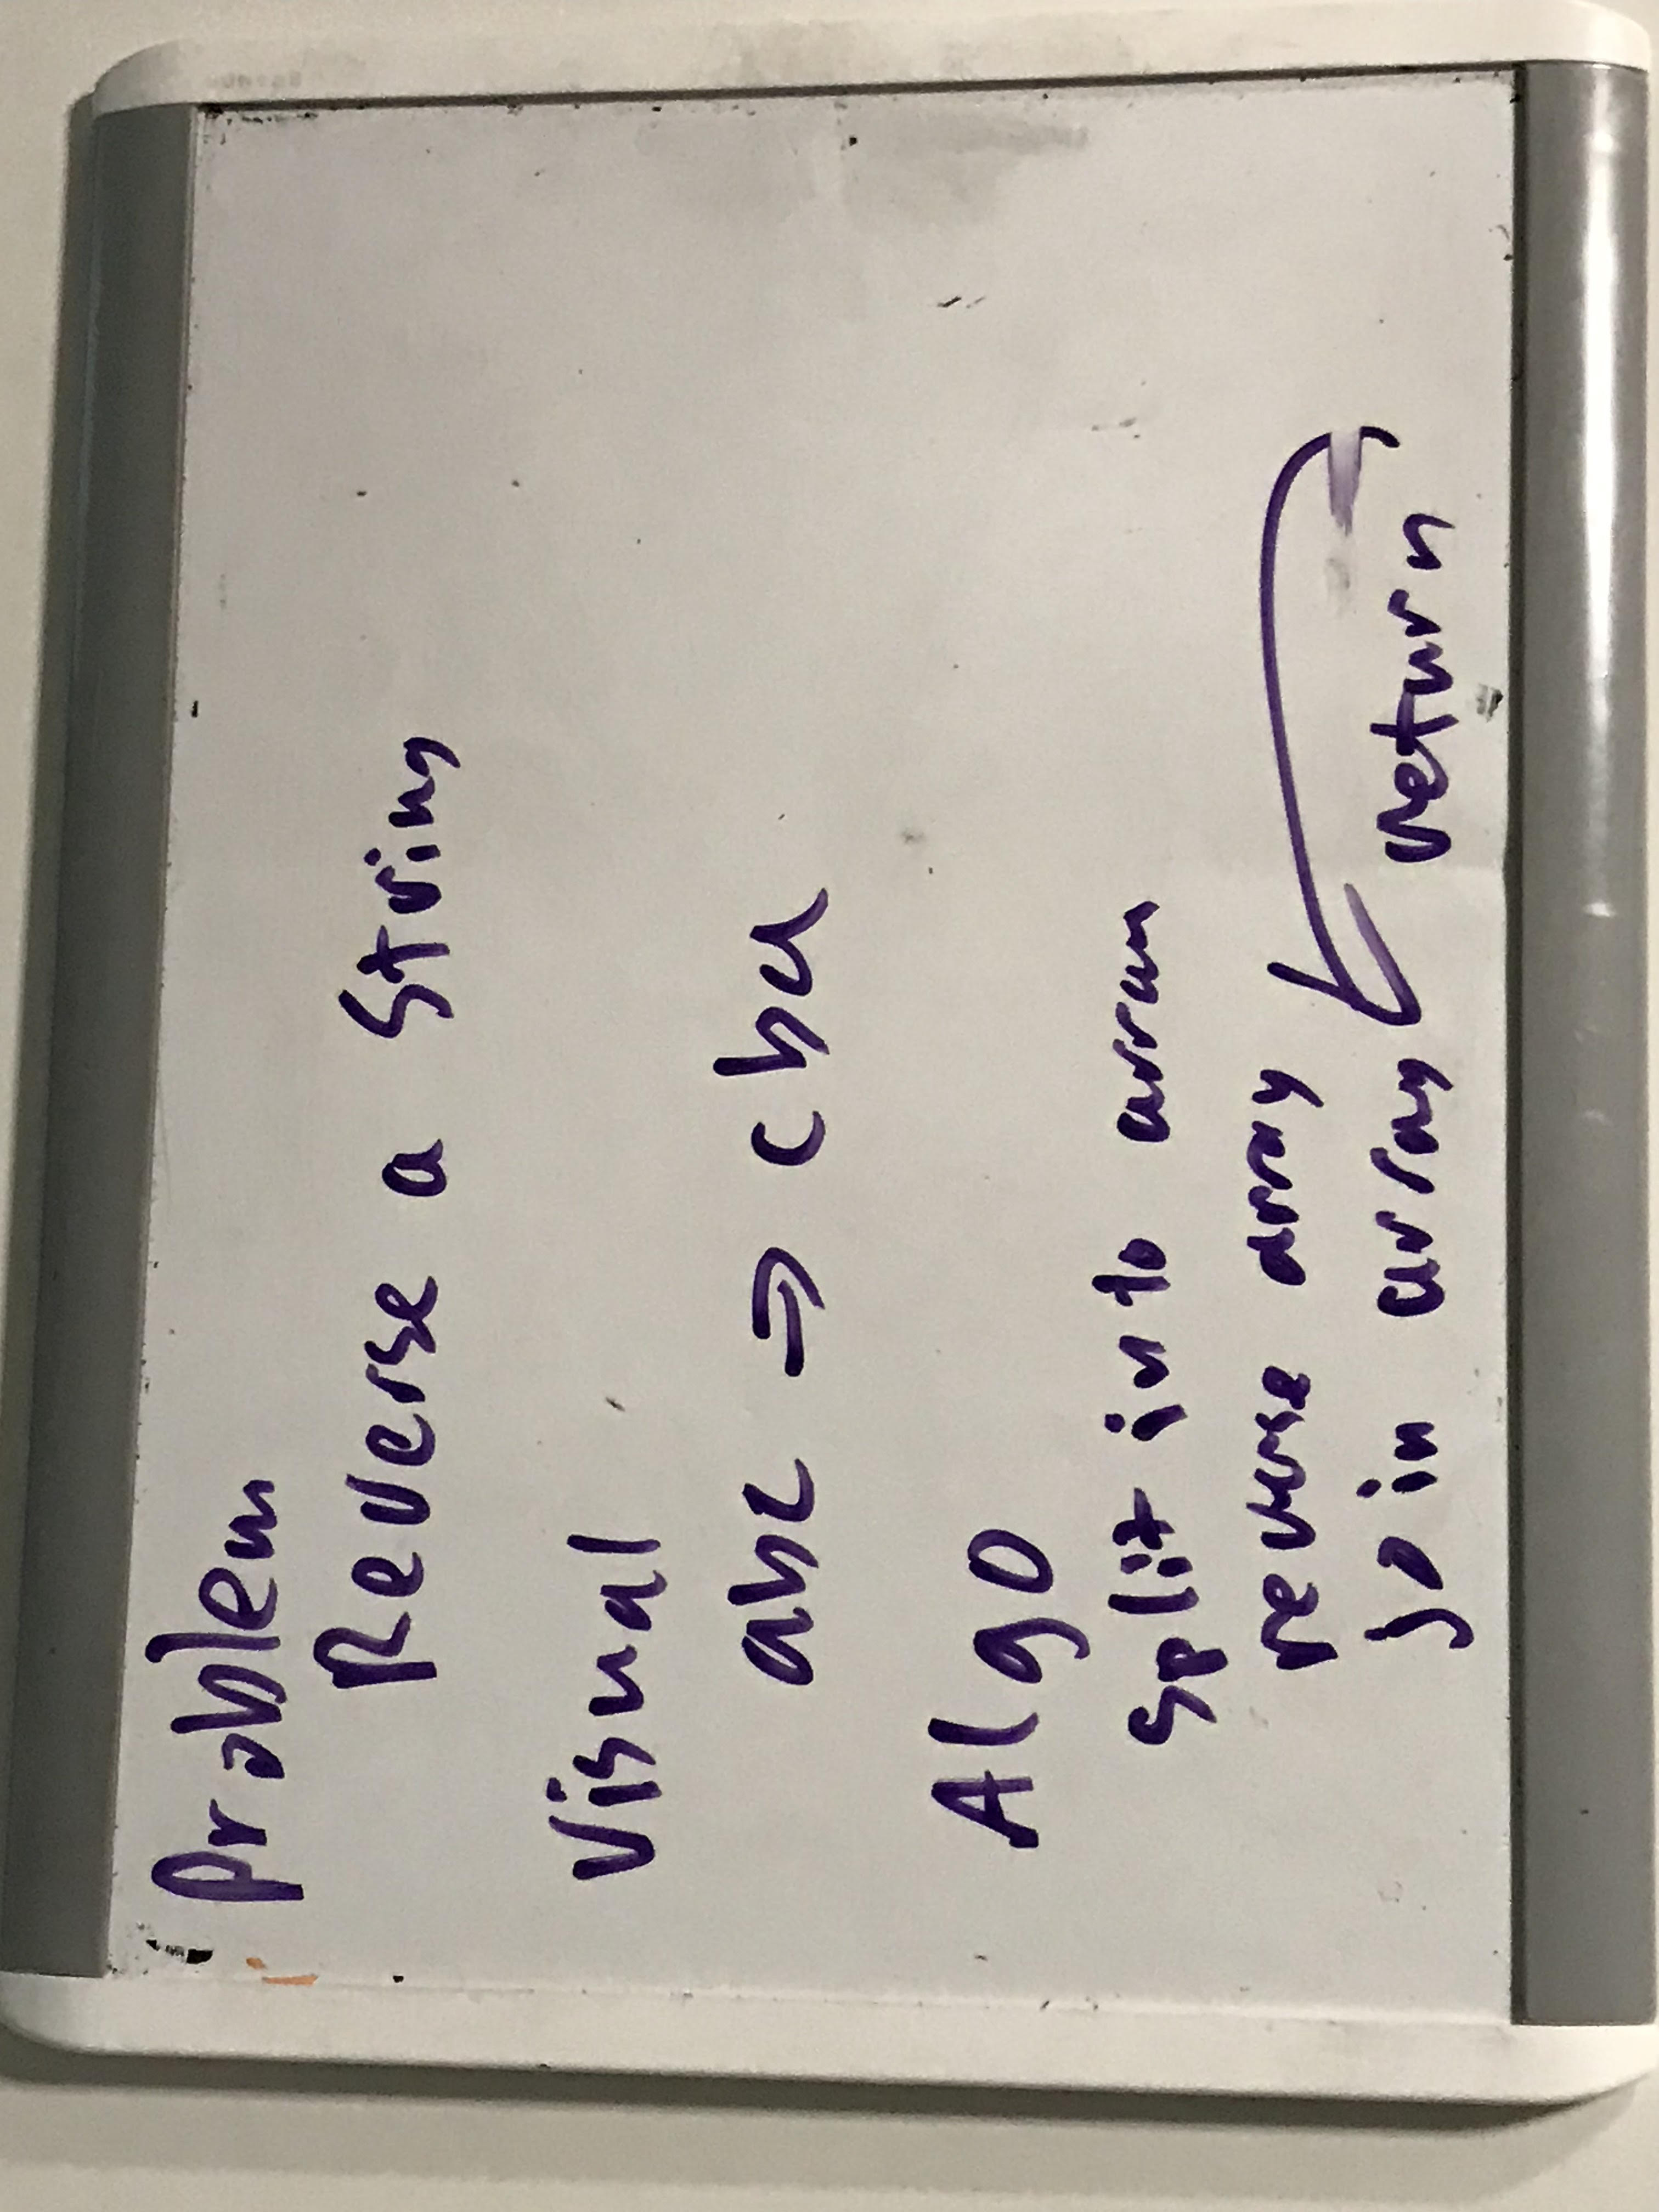 Problem
Reverse a String
Visual
abc ⇒ cba
Algo
split into array
reverse array
join array return